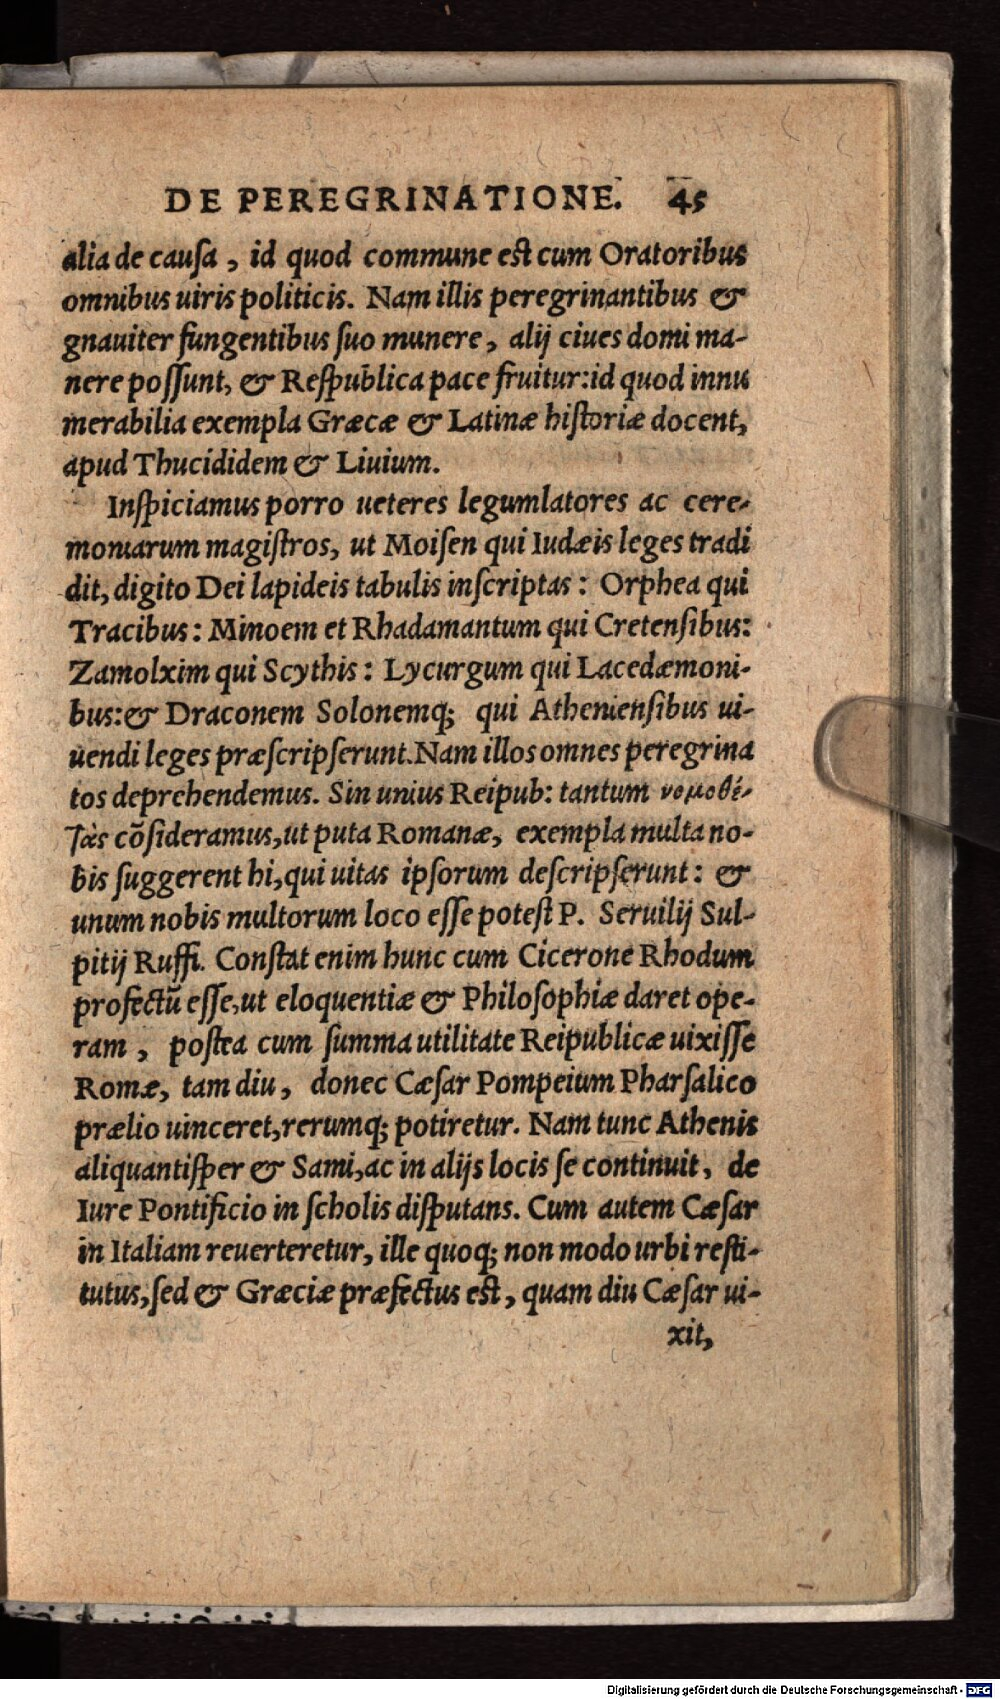 DE PEREGRINATIONE. 45
alia de cauſa, id quod commune eſt cum Oratoribus
omnibus uiris politicis. Nam illis peregrinantibus &
gnauiter fungentibus ſuo munere, alij ciues domi ma-
nere poſſunt, & Reſpublica pace fruitur: id quod innu
merabilia exempla Græcæ & Latinæ hiſtoriæ docent,
apud Thucididem & Liuium.
Inſpiciamus porro ueteres legumlatores ac cere-
moniarum magiſtros, ut Moiſen qui Iudæis leges tradi
dit, digito Dei lapideis tabulis inſcriptas: Orphea qui
Tracibus: Minoem et Rhadamantum qui Cretenſibus:
Zamolxim qui Scythis: Lycurgum qui Lacedæmoni-
bus: & Draconem Solonemq; qui Athenienſibus ui-
uendi leges præſcripſerunt. Nam illos omnes peregrina
tos deprehendemus. Sin unius Reipub: tantum νομοθέ-
τὰς cõſideramus, ut puta Romanæ, exempla multa no-
bis ſuggerent hi, qui uitas ipſorum deſcripſerunt: &
unum nobis multorum loco eſſe poteſt P. Seruilij Sul-
pitij Ruffi. Conſtat enim hunc cum Cicerone Rhodum
profectũ eſſe, ut eloquentiæ & Philoſophiæ daret ope-
ram, poſtea cum ſumma utilitate Reipublicæ uixiſſe
Romæ, tam diu, donec Cæſar Pompeium Pharſalico
prælio uinceret, rerumq; potiretur. Nam tunc Athenis
aliquantiſper & Sami, ac in alijs locis ſe continuit, de
Iure Pontificio in ſcholis diſputans. Cum autem Cæſar
in Italiam reuerteretur, ille quoq; non modo urbi reſti-
tutus, ſed & Græciæ præfectus eſt, quam diu Cæſar ui-
xit,
Digitalisierung gefördert durch die Deutsche Forschungsgemeinschaft - DFG